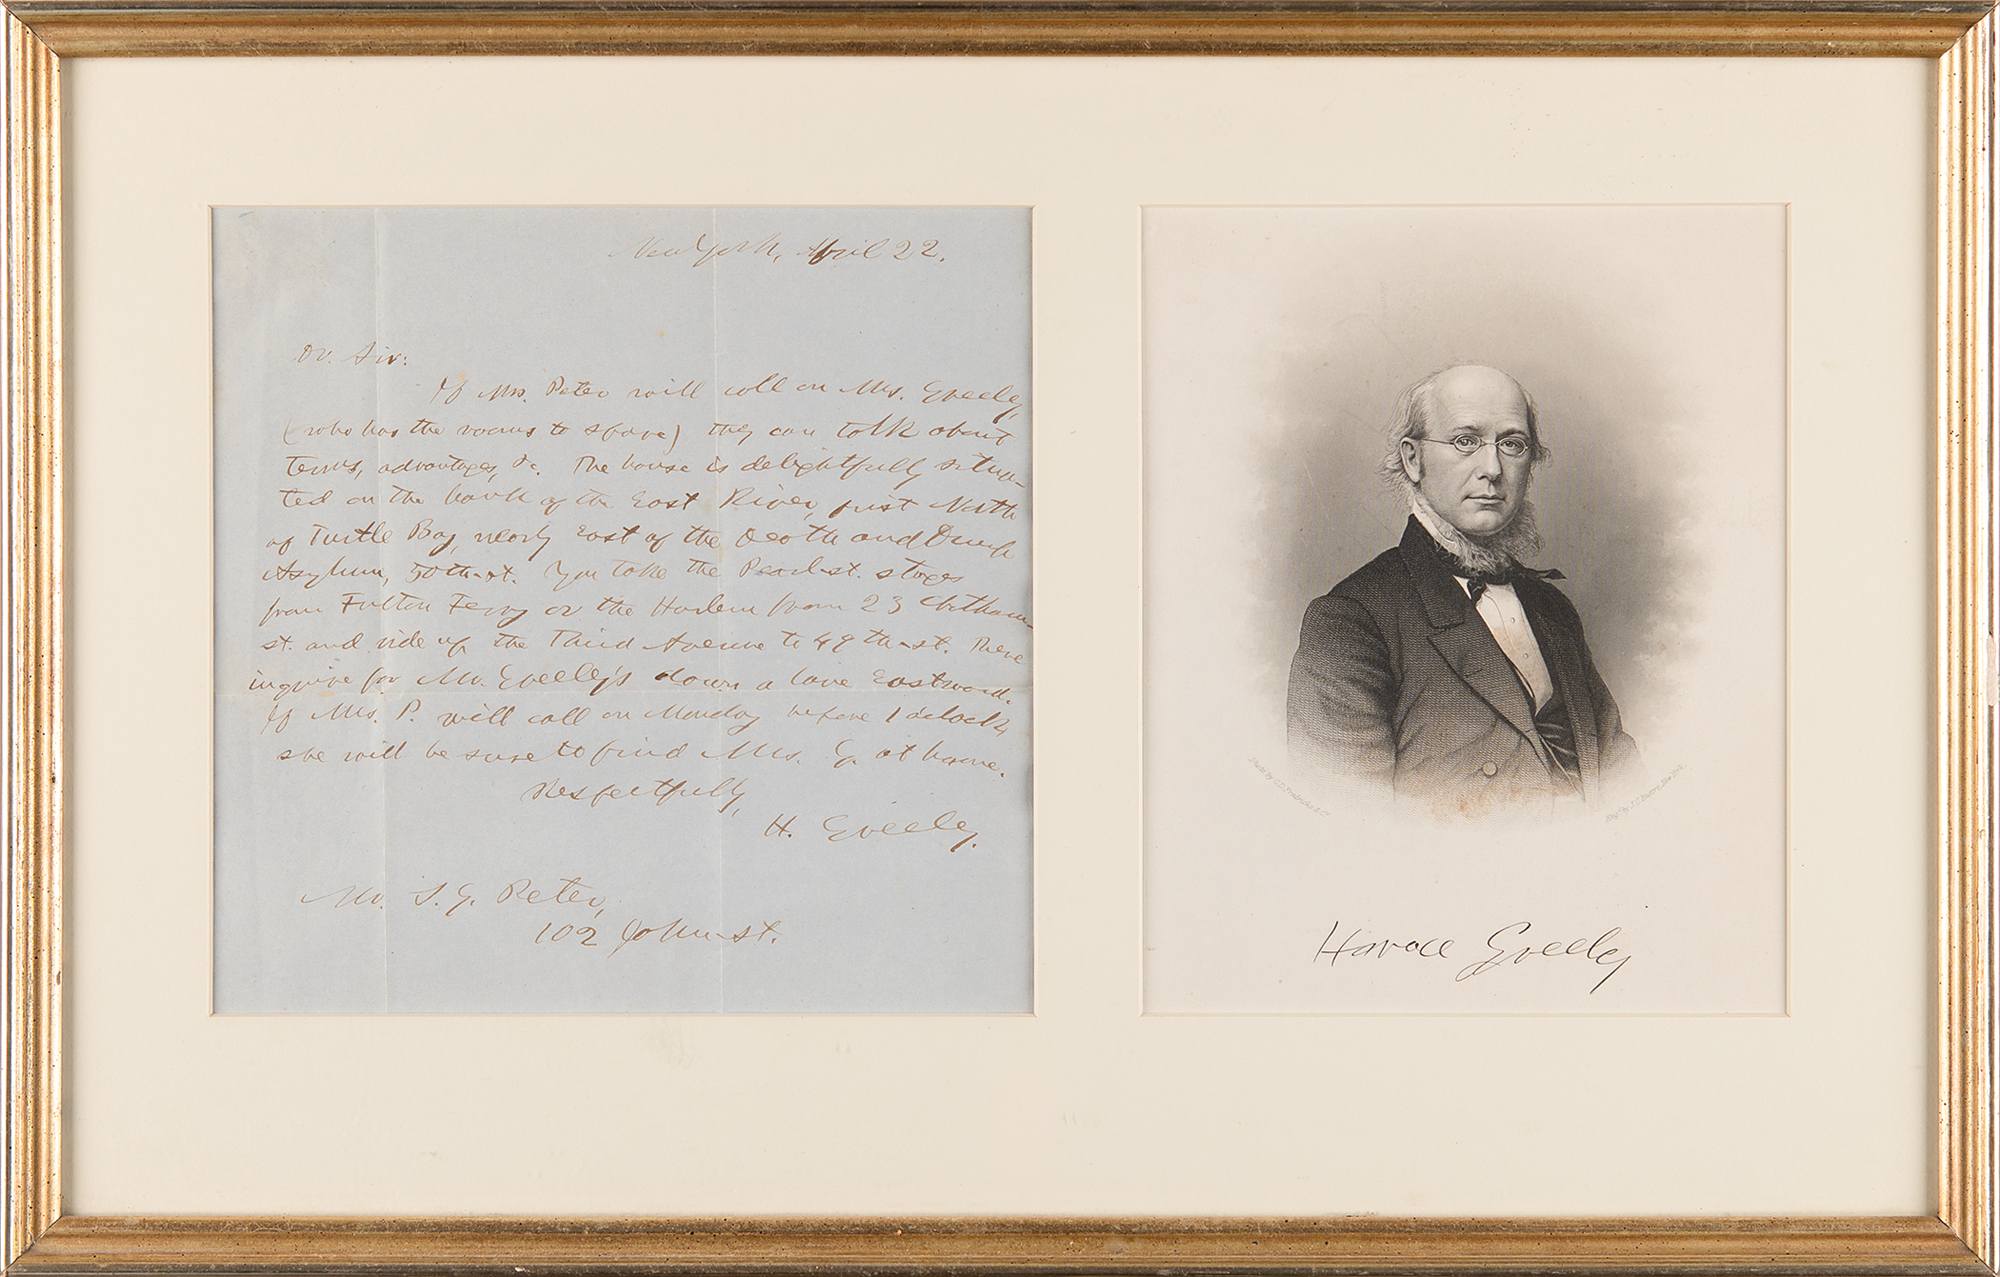 New York, April 22.
Dr. Sir:
If Mrs. Peter will call on Mrs. Greeley,
(who has the rooms to spare) they can talk about
terms, advantages, &c. The house is delightfully situa-
ted on the bank of the East River, just North
of Turtle Bay, nearly East of the Deaf and Dumb
Asylum, 50th-st. You take the Pearl-st. stages
from Fulton Ferry or the Harlem from 23 Chatham-
st. and ride up the Third Avenue to 49th-st. There
inquire for Mr. Greeley's down a lane Eastward.
If Mrs. P. will call on Monday before 1 o'clock
she will be sure to find Mrs. G. at home.
Respectfully,
H. Greeley.
Mr. S. G. Peter,
102 John-st.
Photo by C.D. Fredricks & Co.
Eng'd by J.C. Buttre, New York.
Horace Greeley